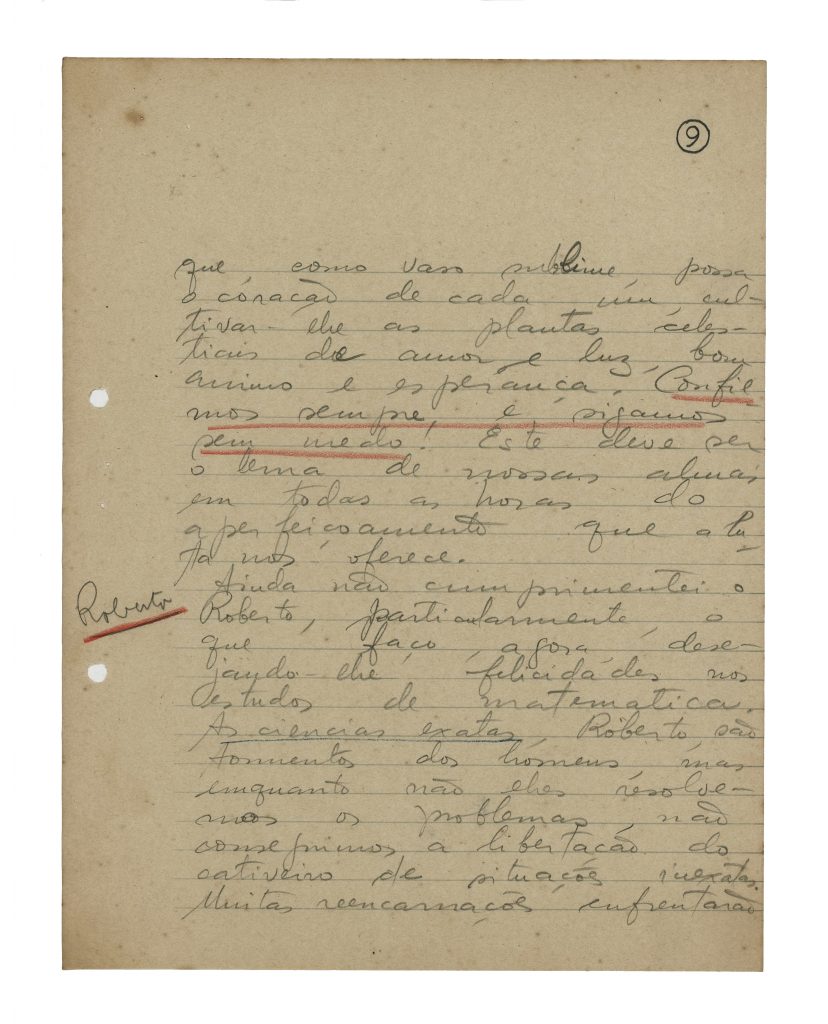 9
que, como vaso sublime, possa
o coração de cada um, cul-
tivar-lhe as plantas celes-
tiais de amor e luz, bom
animo e esperança. Confie
mos sempre, e sigamos
sem medo! Este deve ser
o lema de nossas almas
em todas as horas do
aperfeiçoamento que a lu-
ta nos oferece.
Ainda não cumprimentei o
Roberto
Roberto, particularmente, o
que faço, agora, dese-
jando-lhe felicidades nos
estudos de matematica.
As ciencias exatas, Roberto, são
tormentos dos homens, mas
emquanto não lhes resolve-
mos os problemas, não
conseguimos a libertação do
cativeiro de situações inexatas.
Muitas reencarnações enfrentarão